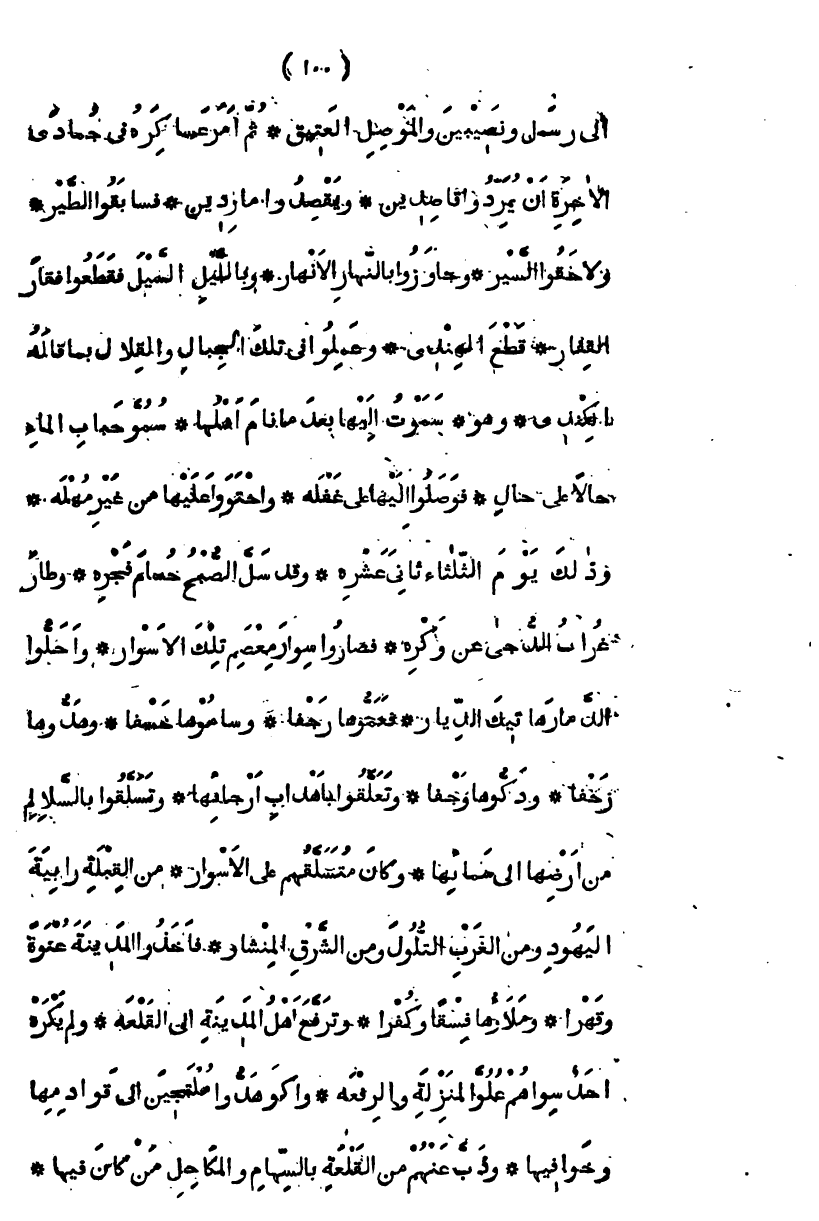 (١٠٠)
الى رسْمَل ونَصِيبينَ والمَوْصِلِ العَتِيق * ثُمَّ اَمَرَ عَساكِرَهُ فى جُمادَى
الاٰخِرَةِ اَنْ يُمِرُّ دُوٓا قاصِدين * ويَقْصِدُوا ماردِين * فسابَقُوا الطَّيْر *
ولاحَقُوا السَّيْر * وجاوَزُوا بالنَّهارِ الاَنْهار * وبالَّليْلِ السَّيْلَ فقَطَعُوا فقارَ
القِفار * قَطْعَ الهِنْدِى * وعَمِلُوا فى تلكَ الجِبالِ والقِلال بما قالَهُ
الكِنْدِى * وهو * سَمَوْتُ اِلَيْها بعدَ ما نامَ اَهْلُها * سُمُوَّ حَبابِ الماءِ
حالًا على حالِ * فوَصَلُوا اليْها على غَفْلَه * واحْتَوَوا عَلَيْها من غَيْرِ مُهْلَه *
وذٰلكَ يَوْمَ الثّلثاء ثانىَ عَشْرِه * وقد سَلَّ الصُّبْحُ حُسامَ فَجْرِه * وطارَ
غُرابُ الدُّجىٰ عن وَكْرِه * فصارُوا سِوارَ مِعْصَمِ تِلْكَ الاَسْوار * واَحَلُّوا
الدَّمارَها تِيكَ الدِّيار * فعَمُّوها رَجْفا * وساموْها خَسْفا * وهدُّوها
زَحْفا * ودَكُّوها وَجْفا * وتَعَلَّقوا باَهْدابِ اَرْجائِها * وتَسَلَّقوا بالسَّلالِمِ
من اَرْضِها الى سَمائِها * وكانَ مُتَسَلَّقُهم على الاَسْوار * من القِبْلَةِ رابِيَةَ
اليَهُودِ ومن الغَرْبِ التُّلُولَ ومن الشَّرْقِ المِنْشار * فاَخَذُوا المَدِينَةَ عَنْوَةً
وقَهْرا * ومَلَاُوها فِسْقًا وكُفْرا * وتَرَفَّعَ اَهْلُ المَدِينَةِ الى القَلْعَه * ولم يَكْرَهْ
اَحَدٌ سِواهُمْ عُلُوَّ المَنْزِلَةِ والرِفْعَه * واكوَهدُّوا مُلْتَجِيْنَ الى قَوادِمِها
وخَوافِيها * وذَبَّ عَنْهُمْ من القَلْعَةِ بالسِّهامِ والمَكاحِلِ مَنْ كانَ فيها *